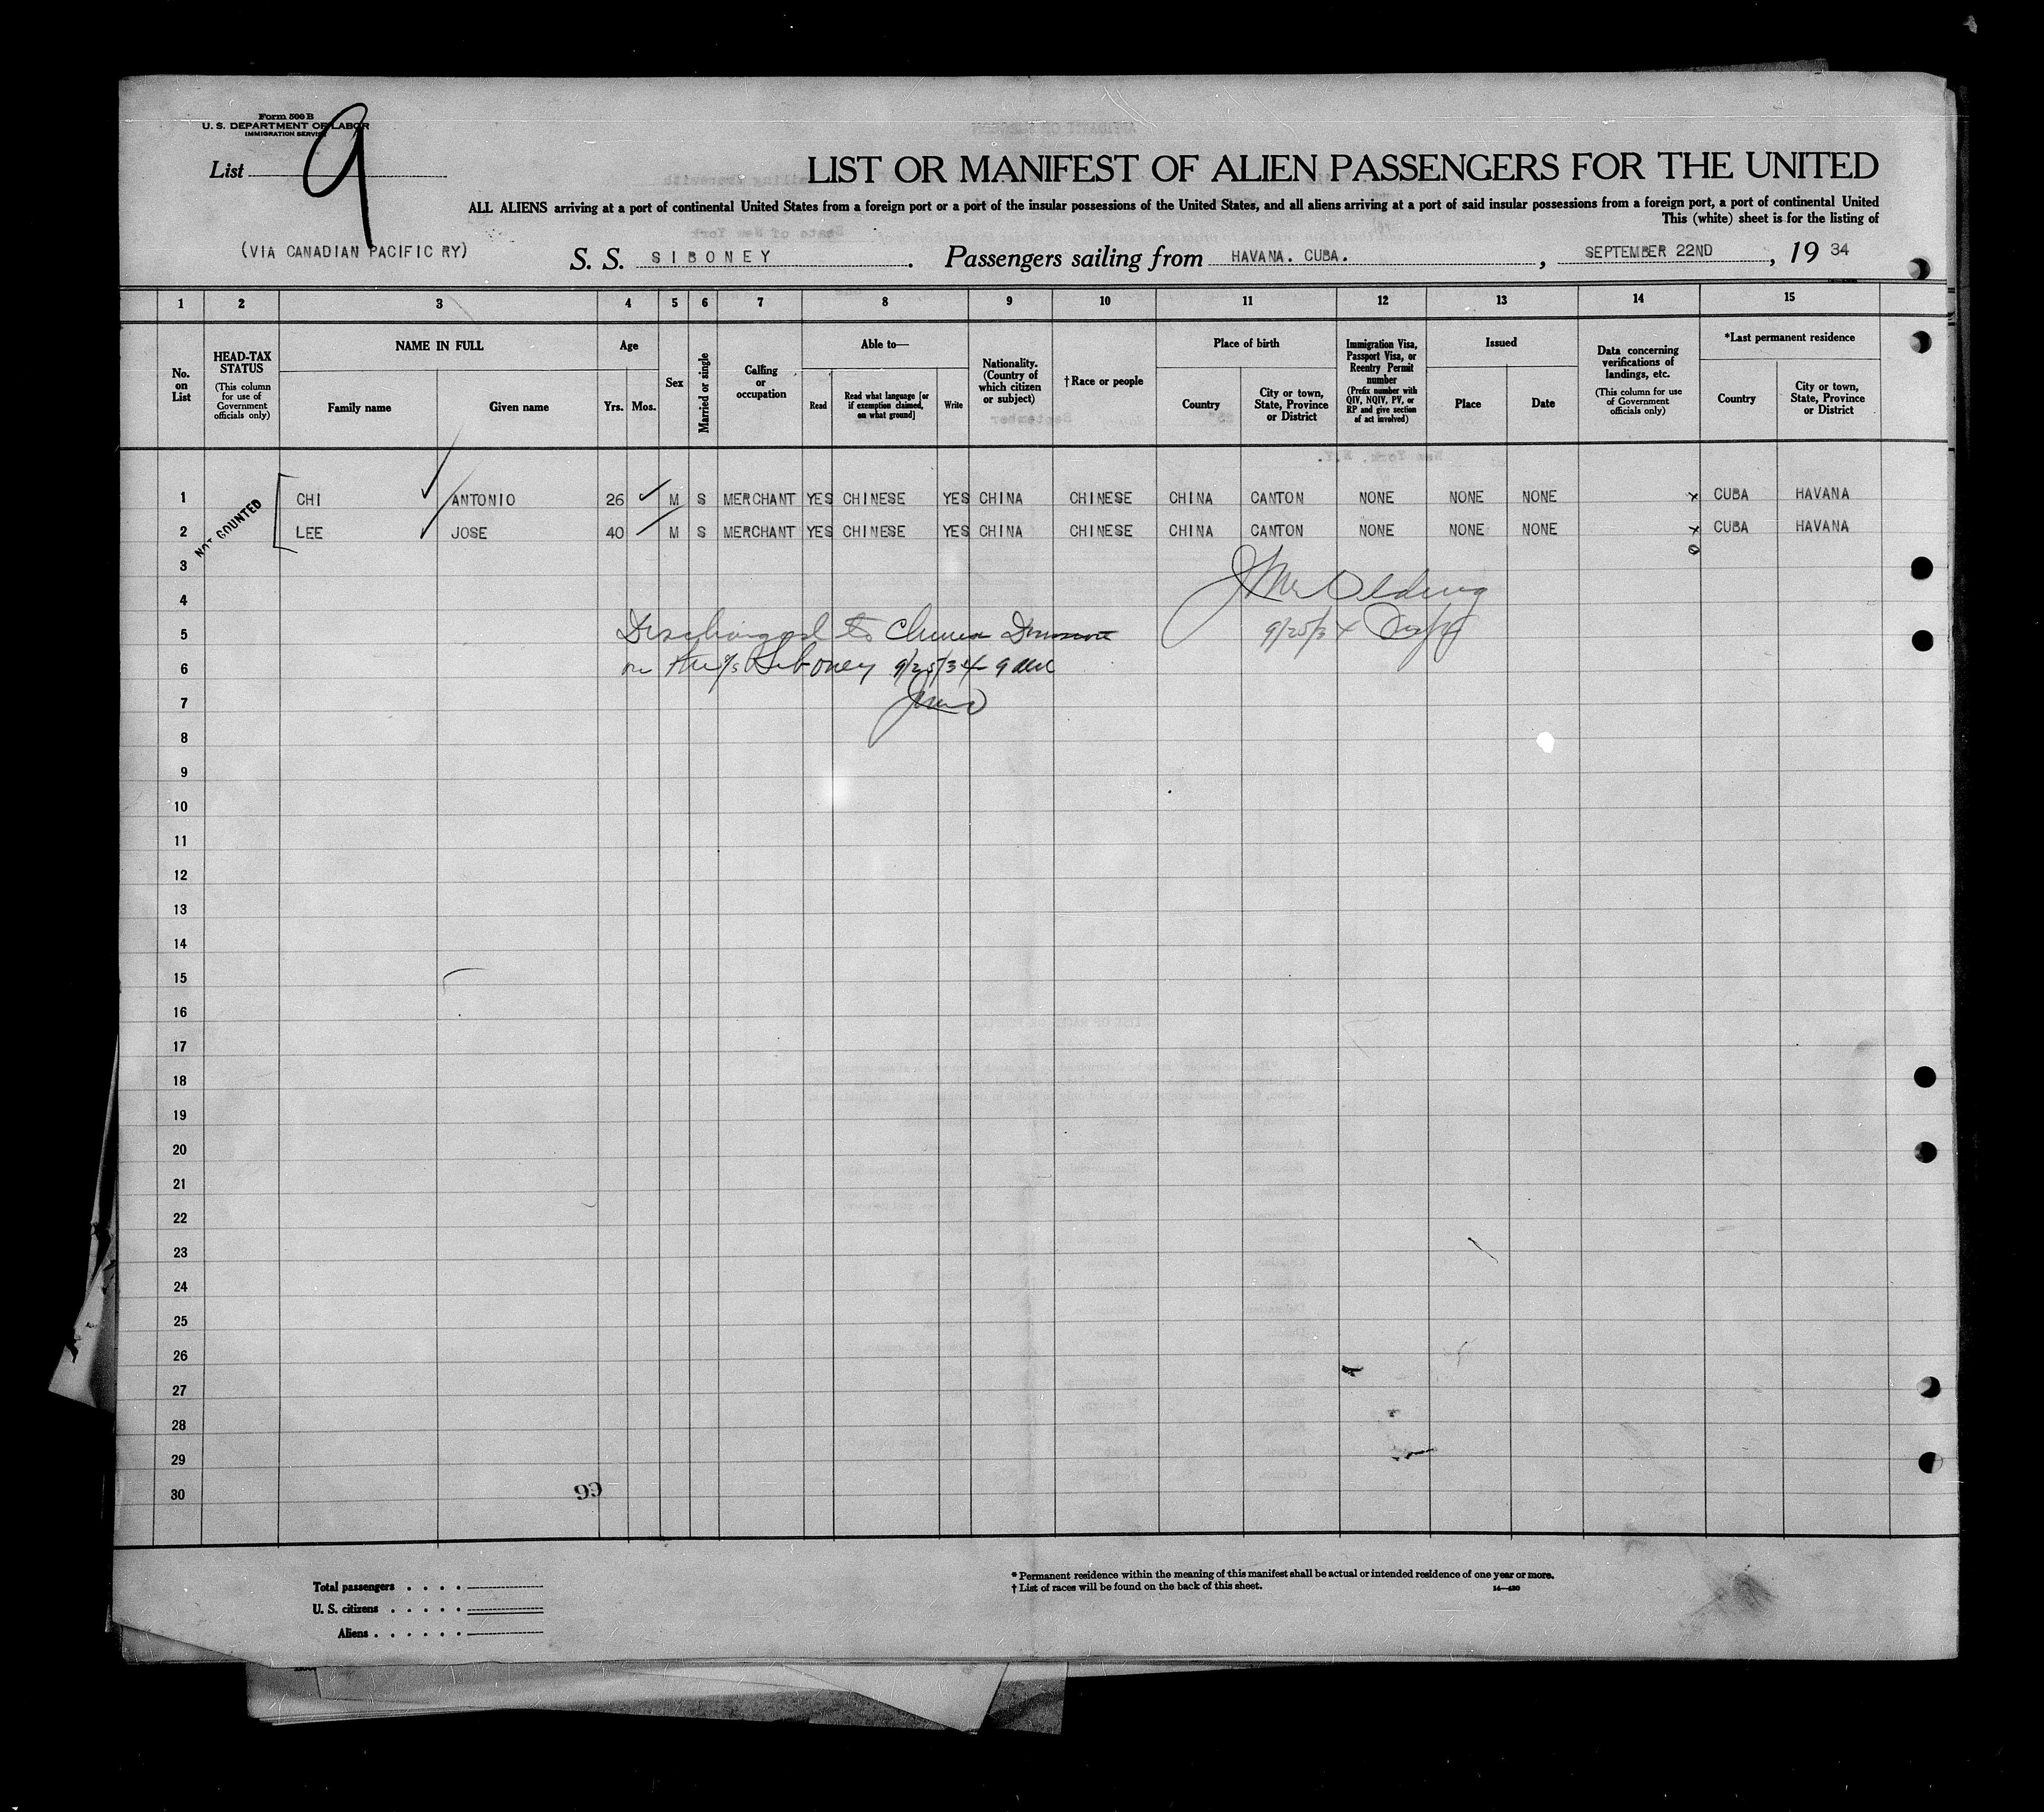 Form 500 B
U. S. DEPARTMENT OF LABOR
IMMIGRATION SERVICE
List 9
LIST OR MANIFEST OF ALIEN PASSENGERS FOR THE UNITED
ALL ALIENS arriving at a port of continental United States from a foreign port or a port of the insular possessions of the United States, and all aliens arriving at a port of said insular possessions from a foreign port, a port of continental United
This (white) sheet is for the listing of
(VIA CANADIAN PACIFIC RY) S. S. SIBONEY. Passengers sailing from HAVANA. CUBA., SEPTEMBER 22ND, 19 34
1 2 3 4 5 6 7 8 9 10 11 12 13 14 15
No. on List
HEAD-TAX STATUS (This column for use of Government officials only)
NAME IN FULL
Family name
Given name
Age
Yrs.
Mos.
Sex
Married or single
Calling or occupation
Able to—
Read
Read what language [or if exemption claimed, on what ground]
Write
Nationality. (Country of which citizen or subject)
† Race or people
Place of birth
Country
City or town, State, Province or District
Immigration Visa, Passport Visa, or Reentry Permit number (Prefix number with QIV, NQIV, PV, or RP and give section of act involved)
Issued
Place
Date
Data concerning verifications of landings, etc. (This column for use of Government officials only)
*Last permanent residence
Country
City or town, State, Province or District
NOT COUNTED
1 CHI ANTONIO 26 M S MERCHANT YES CHINESE YES CHINA CHINESE CHINA CANTON NONE NONE NONE x CUBA HAVANA
2 LEE JOSE 40 M S MERCHANT YES CHINESE YES CHINA CHINESE CHINA CANTON NONE NONE NONE x CUBA HAVANA
3
4
5 Discharged to 9/25/34
6 on Siboney 9/25/34 9 am
7
8
9
10
11
12
13
14
15
16
17
18
19
20
21
22
23
24
25
26
27
28
29
30
99
Total passengers
U. S. citizens
Aliens
* Permanent residence within the meaning of this manifest shall be actual or intended residence of one year or more.
† List of races will be found on the back of this sheet. 14—430